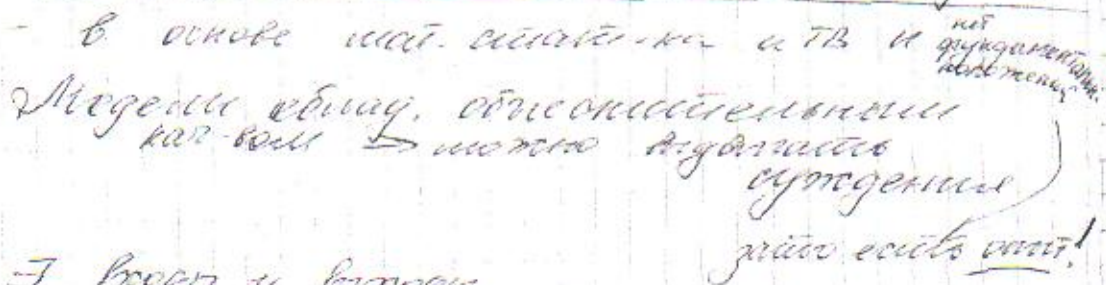 - в основе мат. стати-ки и ТВ и нет фундаменталь. положений
Модели облад. объяснительным
кач-вом → можно выдвигать
суждения
зато есть опыт!